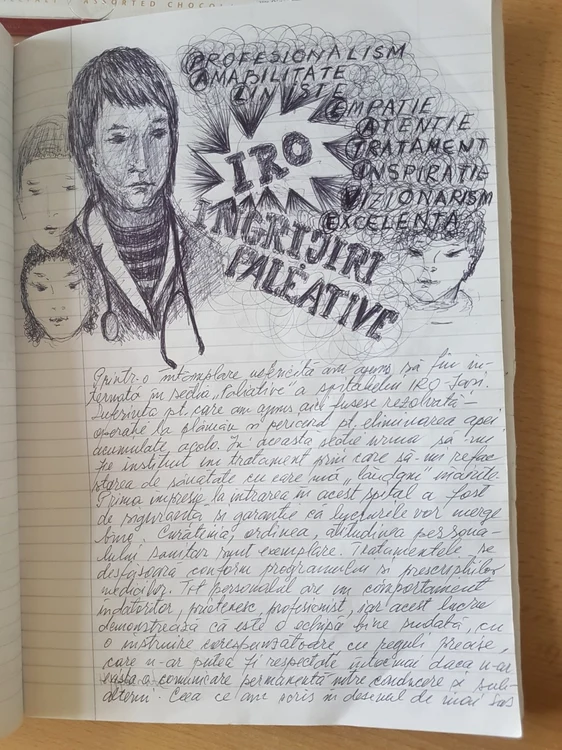 ASSORTED CHOCO
PROFESIONALISM
AMABILITATE
LINIȘTE
EMPATIE
ATENȚIE
TRATAMENT
INSPIRAȚIE
VIZIONARISM
EXCELENȚĂ
IRO
INGRIJIRI
PALEATIVE
Printr-o întâmplare nefericită am ajuns să fiu in-
ternată în secția „Paliative" a spitalului IRO-Iași.
Suferința pt. care am ajuns aici fusese rezolvată -
operație la plămân și pericard pt. eliminarea apei
acumulate acolo. În aceasta secție urma să mi
se instituie un tratament prin care să-mi refac
starea de sănătate cu care mă „lăudam" înainte.
Prima impresie la intrarea în acest spital a fost
de siguranță și garanție că lucrurile vor merge
bine. Curățenia, ordinea, atitudinea persona-
lului sanitar sunt exemplare. Tratamentele se
desfășoară conform programului și prescripțiilor
medicilor. Tot personalul are un comportament
îndatoritor, prietenesc, profesionist, iar acest lucru
demonstrează că este o echipă bine sudată, cu
o instruire corespunzătoare, cu reguli precise,
care n-ar putea fi respectate întocmai daca n-ar
exista o comunicare permanentă între conducere și sub-
alterni. Ceea ce am scris în desenul de mai sus